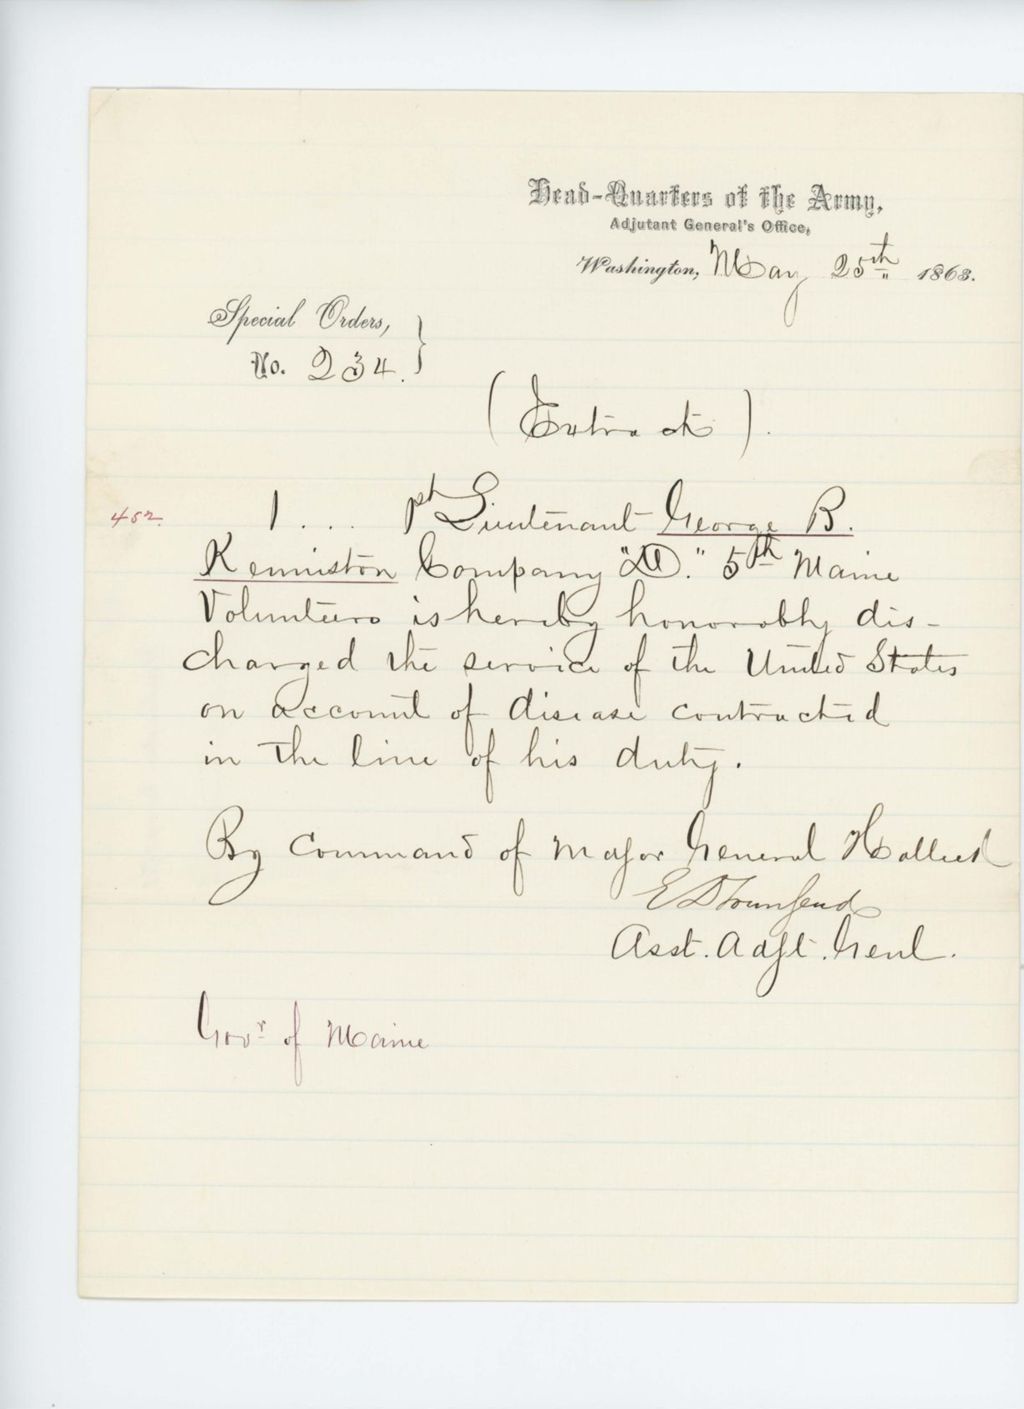 Head-Quarters of the Army,
Adjutant General's Office,
Washington, May 25th 1863.
Special Orders,
No. 234.
(Extract).
452. 1... 1st Lieutenant George B.
Kenniston Company "D." 5th Maine
Volunteers is hereby honorably dis-
charged the service of the United States
on account of disease contracted
in the line of his duty.
By Command of Major General Halleck
E D Townsend
Asst. Adjt. Genl.
Govr of Maine